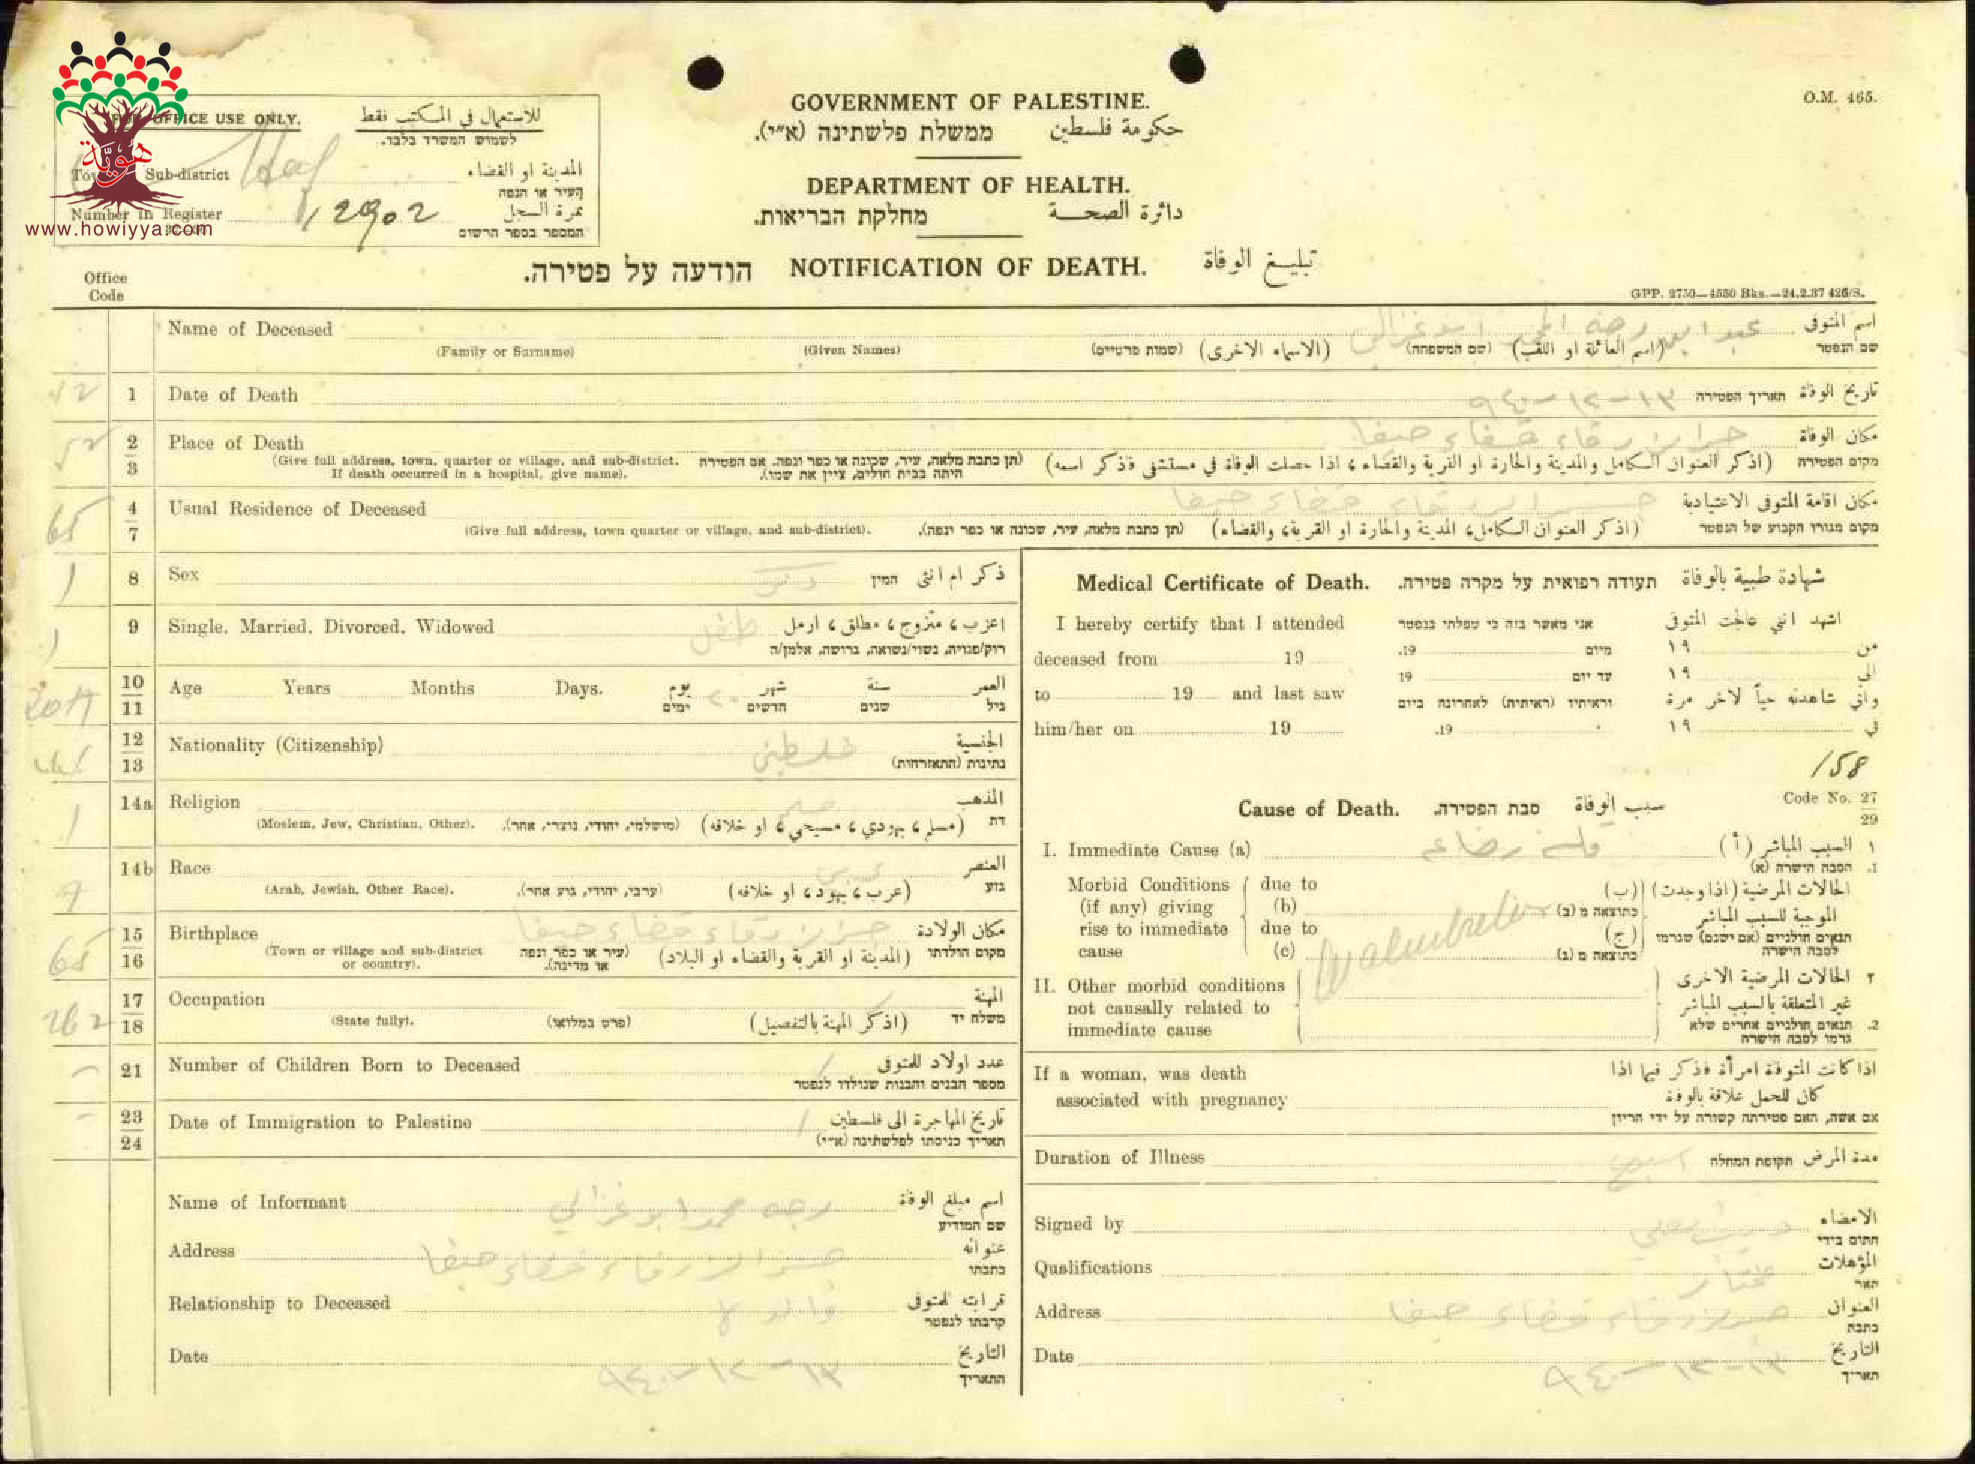 O.M. 465.
FOR OFFICE USE ONLY. للاستعمال في المكتب فقط
לשמוש המשרד בלבד.
Sub-district المدينة او القضاء
העיר או הנפה
Number in Register 12902 نمرة السجل
המספר בספר הרשום
هويّة
www.howiyya.com
GOVERNMENT OF PALESTINE.
ממשלת פלשתינה (א״י). حكومة فلسطين
DEPARTMENT OF HEALTH.
מחלקת הבריאות. دائرة الصحة
הודעה על פטירה. NOTIFICATION OF DEATH. تبليغ الوفاة
Office
Code
GPP. 2750—4550 Bks.—24.2.37 426/S.
Name of Deceased ابو غزالي اسم المتوفى
שם הנפטר
(Family or Surname) (Given Names) (שמות פרטיים) (الاسماء الاخرى) (שם המשפחה) (اسم العائلة او اللقب)
1 Date of Death ١٣-١٢-٩٤٠ תאריך הפטירה تاريخ الوفاة
2 3 Place of Death قضاء حيفا مكان الوفاة
מקום הפטירה
(Give full address, town, quarter or village, and sub-district. (תן כתבת מלאה, עיר, שכונה או כפר ונפה. אם הפטירה (اذكر العنوان الكامل والمدينة والحارة او القرية والقضاء، اذا حصلت الوفاة في مستشفى فاذكر اسمه)
If death occurred in a hospital, give name). היתה בבית חולים, ציין את שמו).
65 4 7 Usual Residence of Deceased جسر الزرقاء قضاء حيفا مكان اقامة المتوفى الاعتيادية
(Give full address, town quarter or village, and sub-district). (תן כתבת מלאה, עיר, שכונה או כפר ונפה). (اذكر العنوان الكامل، المدينة والحارة او القرية، والقضاء) מקום מגורו הקבוע של הנפטר
1 8 Sex ذكر המין ذكر ام انثى
1 9 Single, Married, Divorced, Widowed طفل اعزب، متزوج، مطلق، ارمل
רוק/פנויה, נשוי/נשואה, גרושה, אלמן/ה
10 11 Age Years Months Days. ٢٠ יום שהר سنة العمر
ימים חדשים שנים גיל
12 13 Nationality (Citizenship) فلسطيني الجنسية
נתינות (התאזרחות)
1 14a Religion مسلم المذهب
(Moslem, Jew, Christian, Other). (מושלמי, יהודי, נוצרי, אחר). (مسلم، يهودي، مسيحي، او خلافه) דת
14b Race عربي العنصر
(Arab, Jewish, Other Race). (ערבי, יהודי, גזע אחר). (عرب، يهود، او خلافه) גזע
65 15 16 Birthplace قضاء حيفا مكان الولادة
(Town or village and sub-district or country). (עיר או כפר ונפה או מדינה). (المدينة او القرية والقضاء او البلاد) מקום הולדתו
262 17 18 Occupation المهنة
(State fully). (פרט במלואו) (اذكر المهنة بالتفصيل) משלח יד
21 Number of Children Born to Deceased عدد اولاد للمتوفى
מספר הבנים והבנות שנולדו לנפטר
23 24 Date of Immigration to Palestine تاريخ المهاجرة الى فلسطين
תאריך כניסתו לפלשתינה (א״י)
Name of Informant محمد ابو غزالي اسم مبلغ الوفاة
שם המודיע
Address جسر الزرقاء قضاء حيفا عنوانه
כתבתו
Relationship to Deceased قرابته للمتوفى
קרבתו לנפטר
Date ١٣-١٢-٩٤٠ التاريخ
התאריך
Medical Certificate of Death. תעודה רפואית על מקרה פטירה. شهادة طبية بالوفاة
I hereby certify that I attended אני מאשר בזה כי טפלתי בנפטר اشهد انني عالجت المتوفى
deceased from 19 19. מיום من ١٩
to 19 and last saw 19 עד יום الى ١٩
וראיתיו (ראיתיה) לאחרונה ביום واني شاهدته حياً لاخر مرة
him/her on 19 19. في ١٩
158
Cause of Death. סבת הפטירה. سبب الوفاة Code No. 27 29
I. Immediate Cause (a) قلة رضاعه السبب المباشر (أ) ١
הסבה הישרה (א) 1.
Morbid Conditions due to الحالات المرضية (اذا وجدت) (ب)
(if any) giving (b) כתוצאה מ (ב) الموجبة للسبب المباشر
rise to immediate due to (ج) תנאים חולניים (אם ישנם) שגרמו
cause (c) כתוצאה מ (ג) לסבה הישרה
II. Other morbid conditions الحالات المرضية الاخرى ٢
not causally related to غير المتعلقة بالسبب المباشر
immediate cause תנאים חולניים אחרים שלא 2.
גרמו לסבה הישרה
If a woman, was death اذا كانت المتوفاة امرأة فاذكر فيما اذا
associated with pregnancy كان للحمل علاقة بالوفاة
אם אשה, האם פטירתה קשורה על ידי הריון
Duration of Illness اسبوع תקופת המחלה مدة المرض
Signed by الامضاء
חתום בידי
Qualifications مختار المؤهلات
תאר
Address قضاء حيفا العنوان
כתבת
Date ١٣-١٢-٩٤٠ التاريخ
תאריך